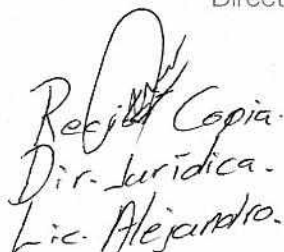 Direct
Copia.
Dir. Jurídica.
Lic. Alejandro.